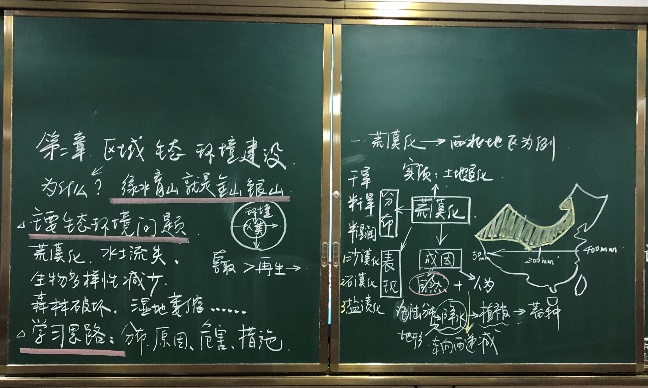 第二章 区域生态环境建设
为什么? 绿水青山就是金山银山
主要生态环境问题
荒漠化、水土流失、
生物多样性减少、
森林破坏、湿地萎缩……
环境
人类
>再生→
学习思路:分布、原因、危害、措施
一.荒漠化→西北地区为例
实质:土地退化
干旱
半干旱
分布
荒漠化
表现
1沙漠化
2石漠化
3盐漠化
成因
自然+人为
降水→植被→
地形
东向西递减
200mm
400mm